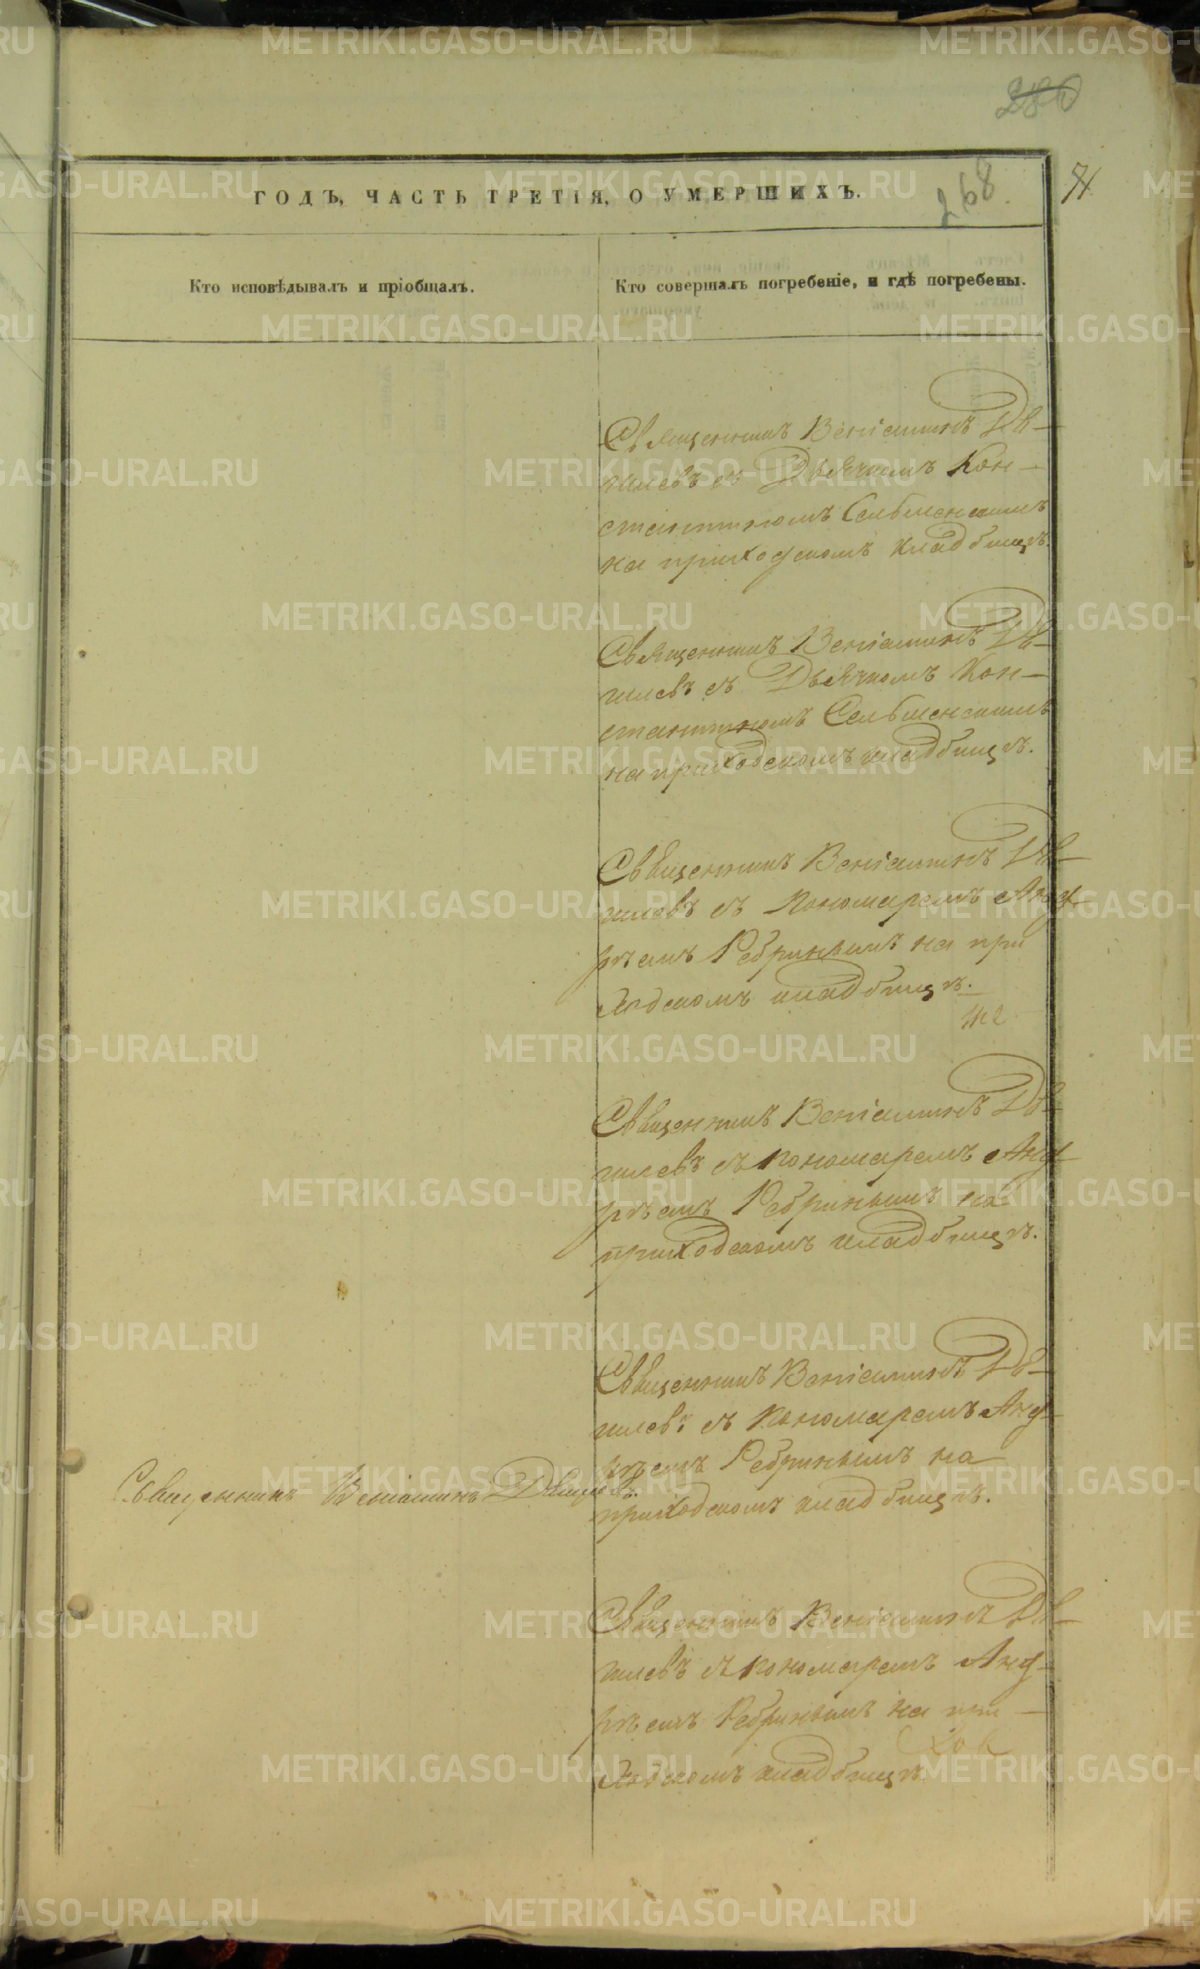 280
ГОДЪ, ЧАСТЬ ТРЕТІЯ, О УМЕРШИХЪ.
268.
Кто исповѣдывалъ и пріобщалъ.
Кто совершалъ погребеніе, и гдѣ погребены.
Священникъ Веніаминъ Дя-
гилевъ съ Дьячкомъ Кон-
стантиномъ Сельменскимъ
на приходскомъ кладбищѣ.
Священникъ Веніаминъ Дя-
гилевъ съ Дьячкомъ Кон-
стантиномъ Сельменскимъ
на приходскомъ кладбищѣ.
Священникъ Веніаминъ Дя-
гилевъ съ Пономаремъ Анд-
рѣемъ Ребринымъ на при
ходскомъ кладбищѣ.
Священникъ Веніаминъ Дя-
гилевъ съ пономаремъ Анд-
рѣемъ Ребринымъ на
приходскомъ кладбищѣ.
Священникъ Веніаминъ Дя-
гилевъ съ Пономаремъ Анд-
рѣемъ Ребринымъ на
приходскомъ кладбищѣ.
Священникъ Веніаминъ Дягилевъ.
Священникъ Веніаминъ Дя-
гилевъ съ пономаремъ Анд-
рѣемъ Ребринымъ на при-
ходскомъ кладбищѣ.
METRIKI.GASO-URAL.RU